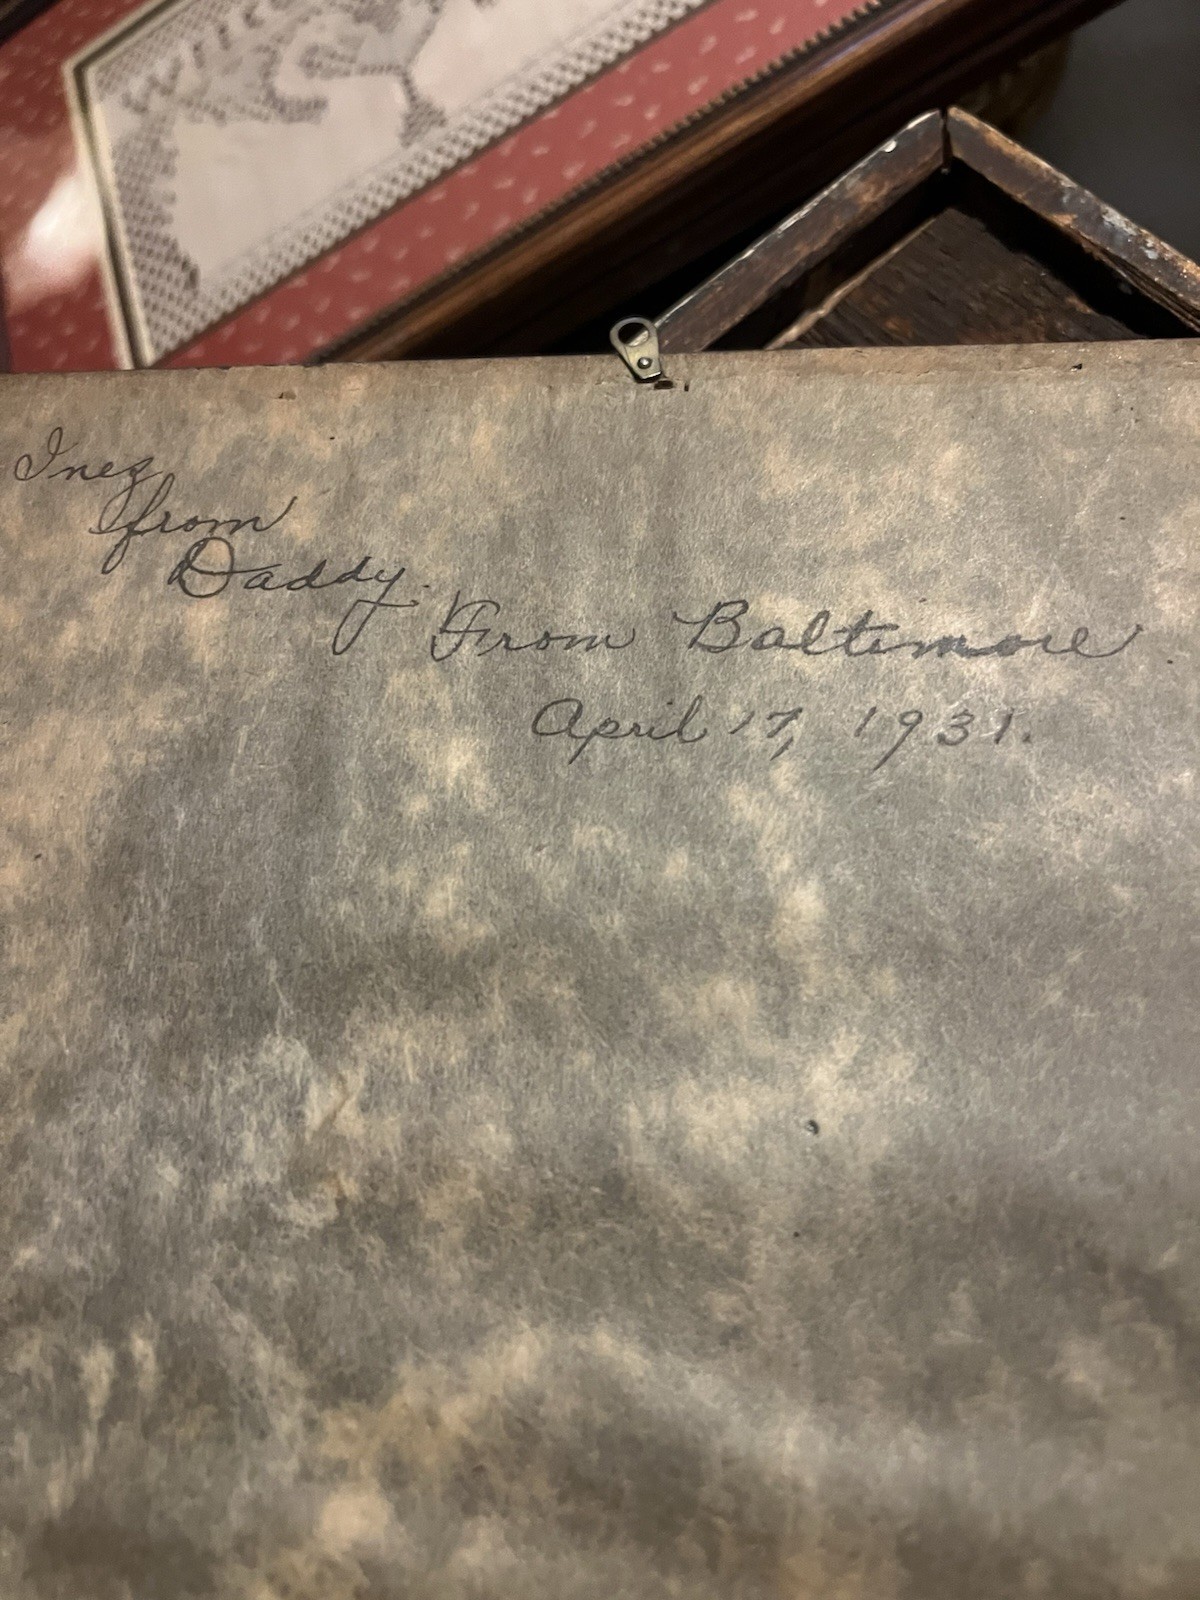 Inez
from
Daddy.
From Baltimore
April 17, 1931.